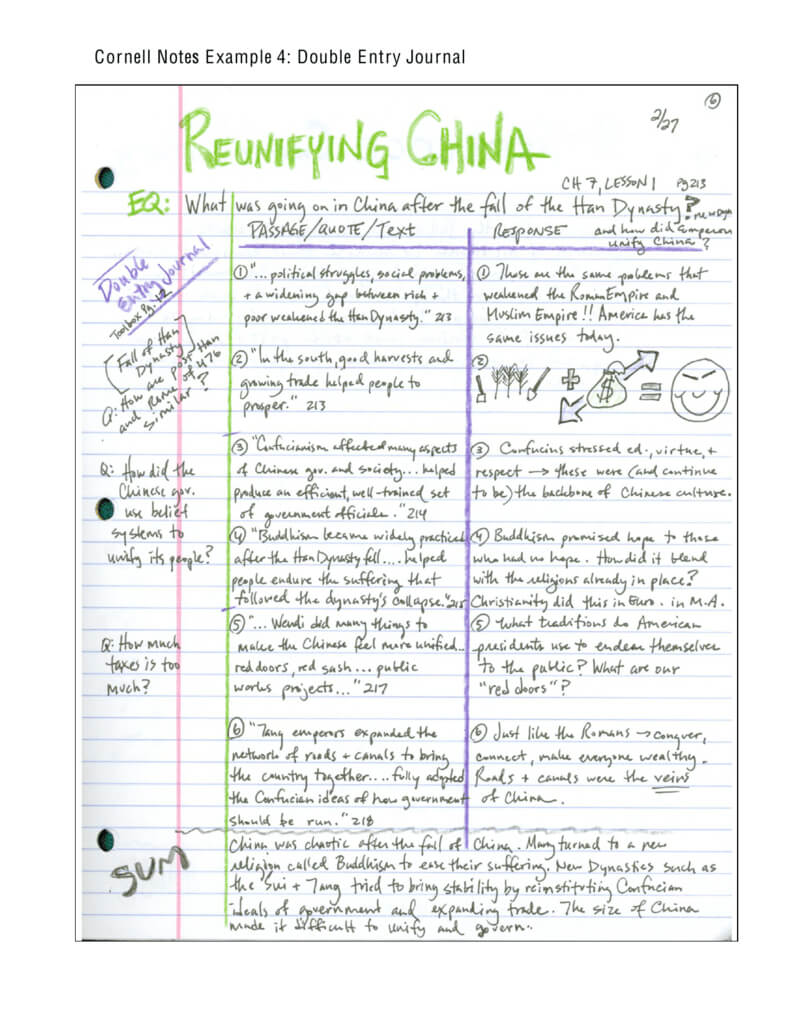 Cornell Notes Example 4: Double Entry Journal
6
2/27
REUNIFYING CHINA
CH 7, LESSON 1 Pg 213
EQ: What was going on in China after the fall of the Han Dynasty?
and how did Emperors
unify China?
PASSAGE/QUOTE/TEXT
RESPONSE
Double
Entry Journal
Toolbox Pg. 12
[Fall of Han
Dynasty]
Q: How are post Han
and Rome of 476
similar?
① "... political struggles, social problems,
+ a widening gap between rich +
poor weakened the Han Dynasty." 213
① These are the same problems that
weakened the Roman Empire and
Muslim Empire!! America has the
same issues today.
② "In the south, good harvests and
growing trade helped people to
prosper." 213
② + $ =
Q: How did the
Chinese gov.
use belief
systems to
unify its people?
③ "Confucianism affected many aspects
of Chinese gov. and society... helped
produce an efficient, well-trained set
of government officials." 214
③ Confucius stressed ed., virtue, +
respect → these were (and continue
to be) the backbone of Chinese culture.
④ "Buddhism became widely practiced
after the Han Dynasty fell.... helped
people endure the suffering that
followed the dynasty's collapse." 215
④ Buddhism promised hope to those
who had no hope. How did it blend
with the religions already in place?
Christianity did this in Euro. in M.A.
Q: How much
taxes is too
much?
⑤ "... Wendi did many things to
make the Chinese feel more unified...
red doors, red sash... public
works projects..." 217
⑤ What traditions do American
presidents use to endear themselves
to the public? What are our
"red doors"?
⑥ "Tang emperors expanded the
network of roads + canals to bring
the country together.... fully adopted
the Confucian ideas of how government
should be run." 218
⑥ Just like the Romans → conquer,
connect, make everyone wealthy.
Roads + canals were the veins
of China.
SUM
China was chaotic after the fall of China. Many turned to a new
religion called Buddhism to ease their suffering. New Dynasties such as
the Sui + Tang tried to bring stability by reinstituting Confucian
ideals of government and expanding trade. The size of China
made it difficult to unify and govern.